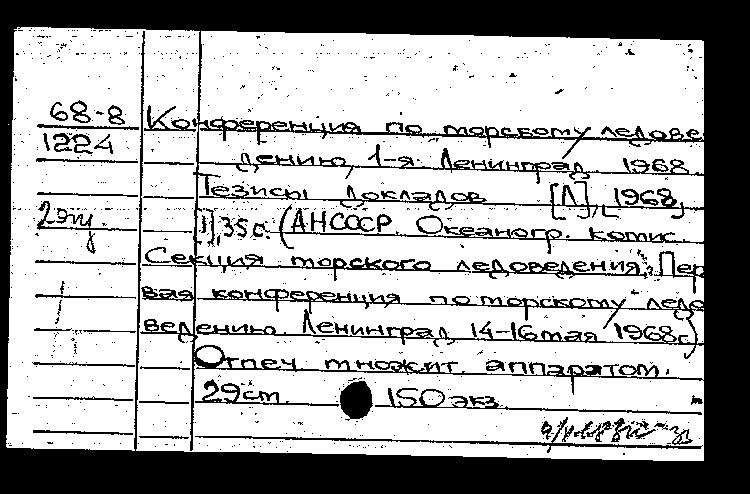 68-8 Конференция по морскому ледове
1224 дению, 1-я. Ленинград. 1968.
Тезисы докладов [Л], [1968]
II, 35 с. (АН СССР. Океаногр. комис.
Секция морского ледоведения. Пер
вая конференция по морскому ледо
ведению. Ленинград, 14-16 мая 1968г.)
Отпеч. множит. аппаратом.
29 см. 150 экз.